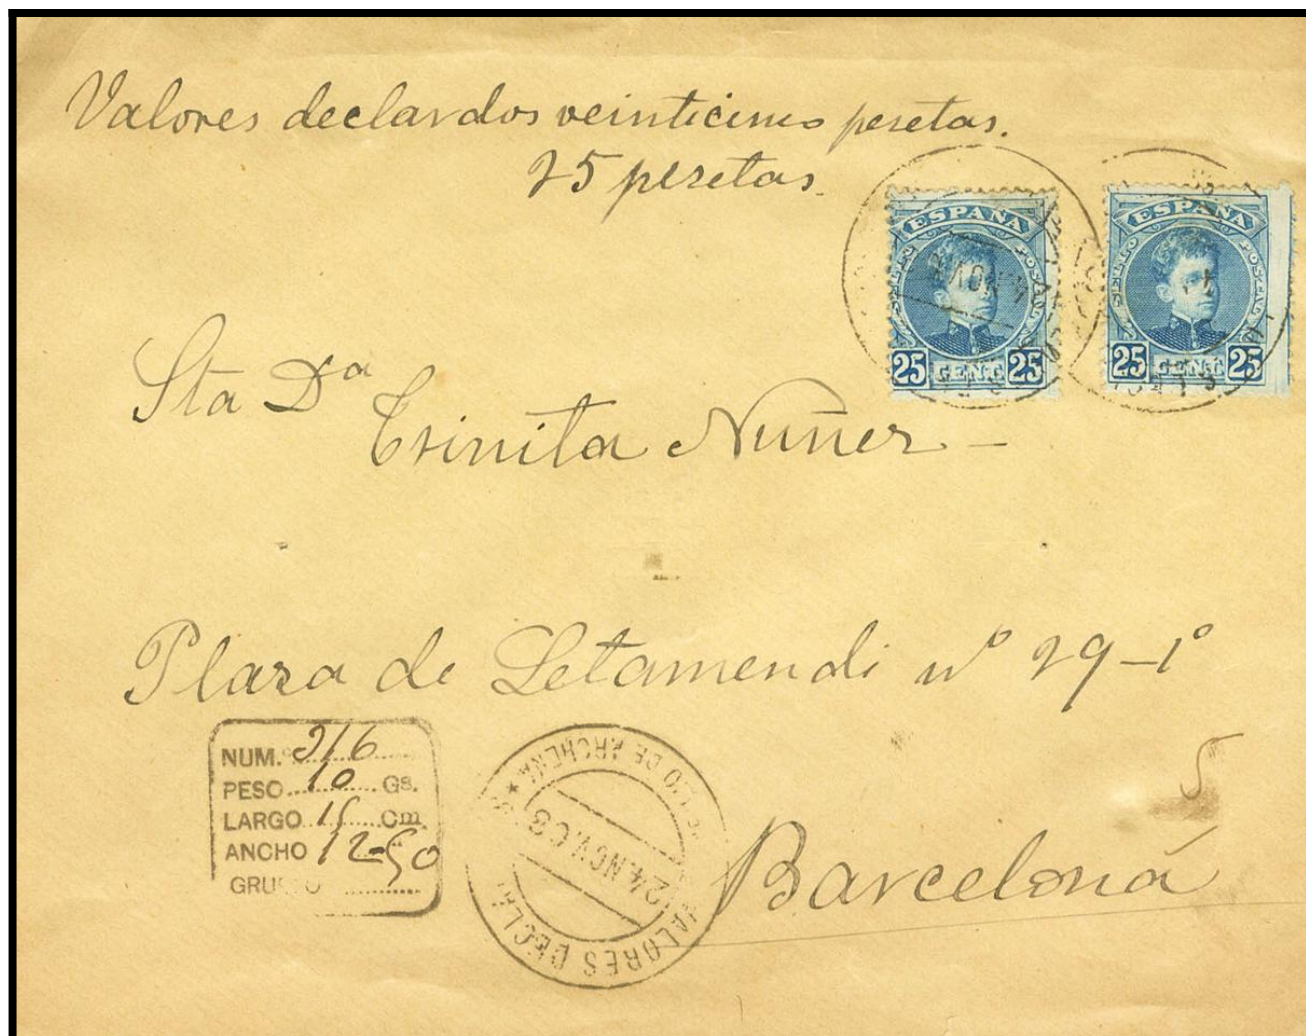 Valores declardos veinticinco pesetas.
25 pesetas.
ESPAÑA
SELLO POSTAL
25 CENT 25
ESPAÑA
SELLO POSTAL
25 CENT 25
Sta Dª
Trinita Nuñez -
Plaza de Letamendi nº 29-1º
NUM. 216
PESO 10 Gs.
LARGO 15 Cm.
ANCHO 12-50
DE ARCHENA
24.NOV.08
VALORES DECLA
5
Barcelona